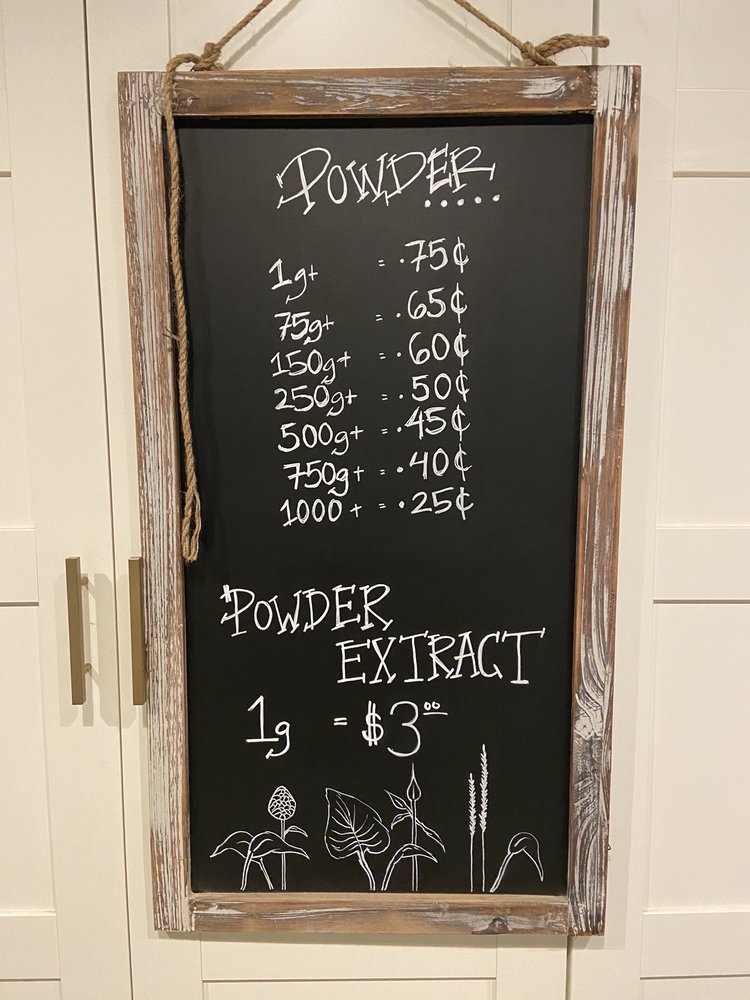 POWDER
1g+ = .75¢
75g+ = .65¢
150g+ = .60¢
250g+ = .50¢
500g+ = .45¢
750g+ = .40¢
1000+ = .25¢
POWDER
EXTRACT
1g = $3.00